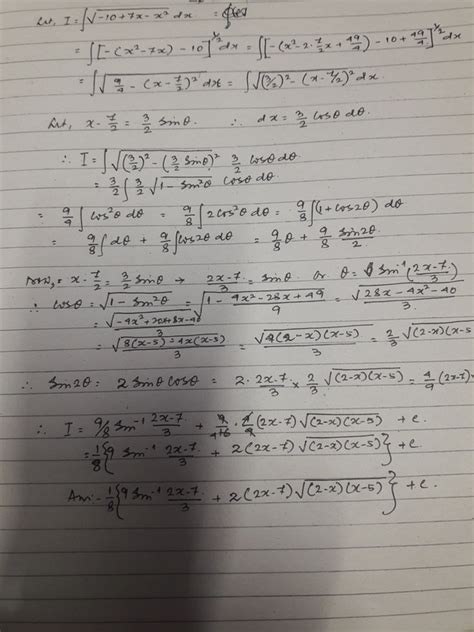 Let, I = ∫√(-10+7x-x²) dx =
= ∫[-(x²-7x)-10]^(1/2) dx = ∫[-(x²-2·7/2x+49/4)-10+49/4]^(1/2) dx
= ∫√(9/4-(x-7/2)²) dx = ∫√((3/2)²-(x-7/2)²) dx
Let, x-7/2 = 3/2 sinθ ∴ dx = 3/2 cosθ dθ.
∴ I = ∫√((3/2)²-(3/2 sinθ)²) 3/2 cosθ dθ
= 3/2 ∫ 3/2 √(1-sin²θ) cosθ dθ
= 9/4 ∫cos²θ dθ = 9/8 ∫2cos²θ dθ = 9/8 ∫(1+cos2θ) dθ
= 9/8 ∫dθ + 9/8 ∫cos2θ dθ = 9/8 θ + 9/8 sin2θ/2
Now, x-7/2 = 3/2 sinθ → (2x-7)/3 = sinθ or θ = sin⁻¹((2x-7)/3)
∴ cosθ = √(1-sin²θ) = √(1-(4x²-28x+49)/9) = √(28x-4x²-40)/3
= √(-4x²+20x+8x-40)/3
= √(8(x-5)-4x(x-5))/3 = √(4(2-x)(x-5))/3 = 2/3 √((2-x)(x-5))
∴ sin2θ = 2 sinθ cosθ = 2·(2x-7)/3 × 2/3 √((2-x)(x-5)) = 4/9 (2x-7)
∴ I = 9/8 sin⁻¹ (2x-7)/3 + 9/16 · 4/9 (2x-7)√((2-x)(x-5)) + c.
= 1/8 {9 sin⁻¹ (2x-7)/3 + 2(2x-7)√((2-x)(x-5))} + c
Ans:- 1/8 {9 sin⁻¹ (2x-7)/3 + 2(2x-7)√((2-x)(x-5))} + c.